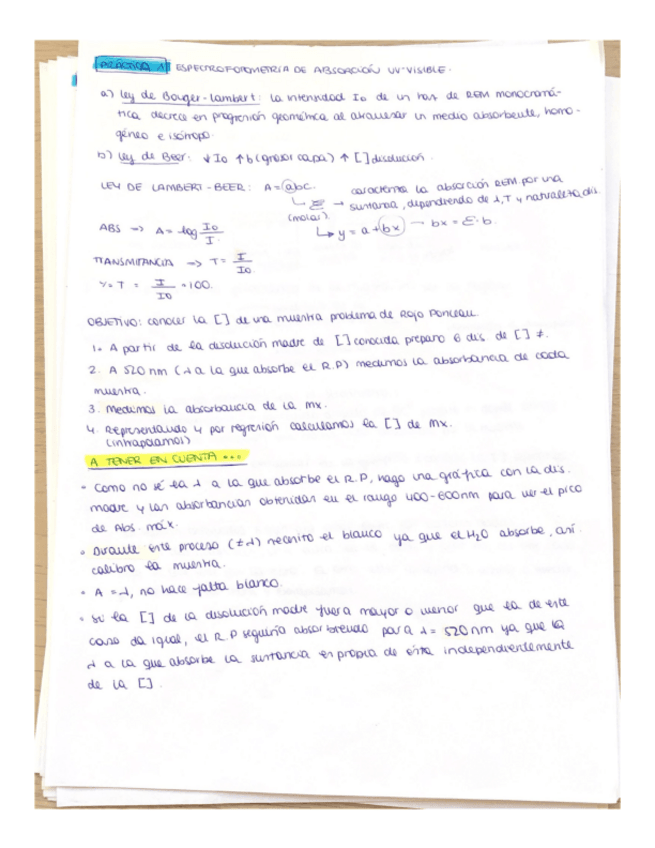 PRÁCTICA 1 ESPECTROFOTOMETRIA DE ABSORCIÓN UV-VISIBLE.
a) Ley de Bouger-Lambert: la intensidad Io de un haz de REM monocromá-
tica decrece en progresión geométrica al atravesar un medio absorbente, homo-
géneo e isótropo.
b) Ley de Beer: ↓ Io ↑ b (grosor capa) ↑ [] disolución.
LEY DE LAMBERT-BEER: A = abc.
caracteriza la absorción REM por una
(molar) ε → sustancia, dependiendo de λ, T y naturaleza dis.
y = a + bx → bx = ε·b.
ABS => A = -log Io/I
TRANSMITANCIA => T = I/Io
% T = I/Io · 100.
OBJETIVO: conocer la [] de una muestra problema de Rojo Ponceau
1. A partir de la disolución madre de [] conocida preparo 6 dis. de [] ≠.
2. A 520 nm (λ a la que absorbe el R.P) medimos la absorbancia de cada
muestra.
3. Medimos la absorbancia de la mx.
4. Representando y por regresión calculamos la [] de mx.
(intrapolamos)
A TENER EN CUENTA...
• Como no sé la λ a la que absorbe el R.P, hago una gráfica con la dis.
madre y las absorbancias obtenidas en el rango 400-600nm para ver el pico
de Abs. máx.
• Durante este proceso (±λ) necesito el blanco ya que el H2O absorbe, así
calibro la muestra.
• A = λ, no hace falta blanco.
• Si la [] de la disolución madre fuera mayor o menor que la de este
caso da igual, el R.P seguiría absorbiendo para λ = 520 nm ya que la
λ a la que absorbe la sustancia es propia de ésta independientemente
de la [].